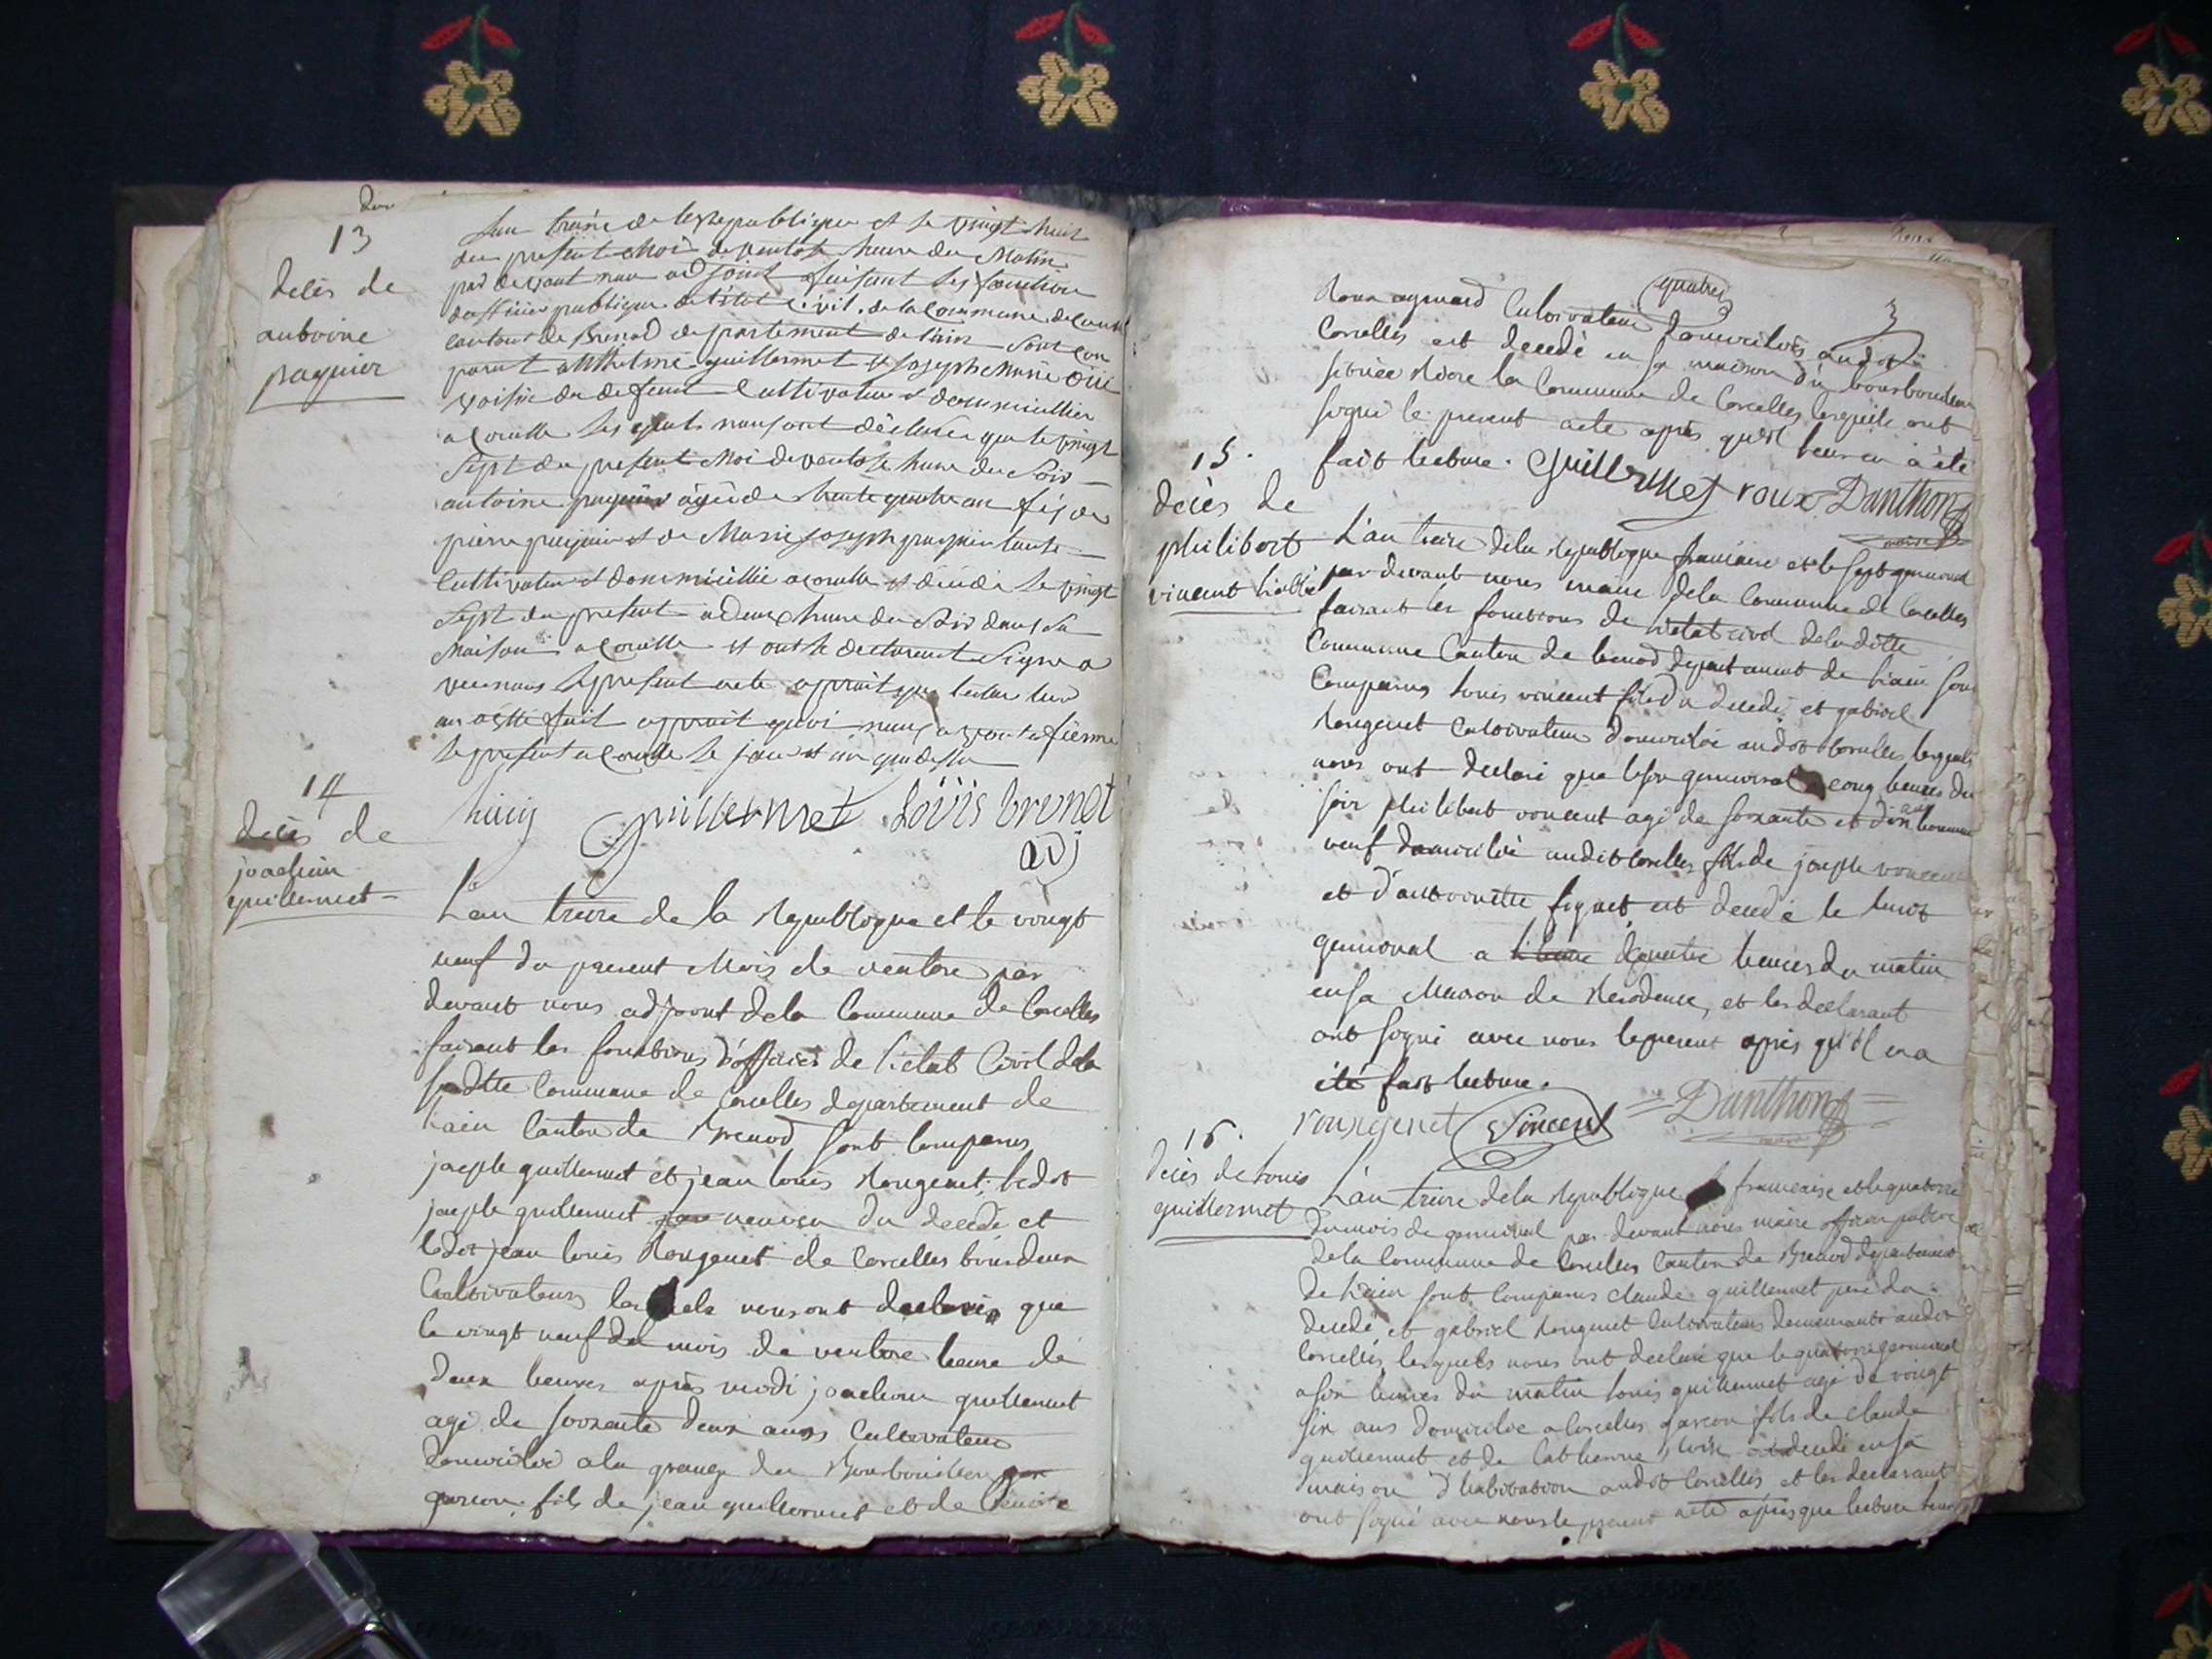 13
décès de
antoine
paquier
du present Moi de ventose heure du Matin
par devant nous adjoint faisant les fonction
d'officier publique de l'état civil de la Commune de
canton de Brenod departement de l'ain sont com
parut anthelme guillermet et joseph
voisin du defunt Cultivateur et dommicillier
a Corcelle les quels nous ont déclaré que le vingt
Sept du present Moi de ventose heure du Soir
antoine âgé de quatre an fis de
pierre et de Marie joseph
Cultivateur et dommicillié a Corcelle et décédé le vingt
Sept du present a deux heure du Soir dans Sa
Maison a Corcelle et ont le declarent Signe a
vec nous le present acte lecture leur
an a été fait
le present a Corcelle le jour et an que dessu
huiy guillermet Loüis brunet
adj
14
décès de
joachim
guillermet
L'an treize de la Republique et le vingt
neuf du present Mois de ventose par
devant nous adjoint de la Commune de Corcelles
faisant les fonctions d'officier de l'etat Civil de la
susditte Commune de Corcelles departement de
l'ain Canton de Brenod sont comparus
joseph guillermet et jean louis Rougemet, ledit
joseph guillermet neveu du decedé et
ledit jean louis Rougemet de Corcelles tous deux
Cultivateurs lesquels nous ont declaré que
le vingt neuf du mois de ventose heure de
deux heures après midi joachim guillermet
agé de soixante deux ans Cultivateur
domicilié a la grange du Bourbouillon
garcon fils de jean guillermet et de
quatre
3
Roux aymard Cultivateur domicilié audit
Corcelles est decedé en sa maison du
située Riere la Commune de Corcelles lesquels ont
signé le present acte après qu'il leur en a été
fait lecture. Guillermet roux Danthon
15.
décès de
philibert
vincent
L'an treize de la Republique francaise et le sept germinal
par devant nous maire de la Commune de Corcelles
faisant les fonctions de l'etat civil de la ditte
Commune Canton de brenod departement de l'ain sont
Comparus louis vincent fils du decedé et gabriel
Rougemet Cultivateurs domicilié audit Corcelles lesquels
nous ont declaré que le six germinal a cinq heures du
soir philibert vincent agé de soixante et dix ans homme
veuf domicilié audit Corcelles fils de joseph vincent
et d'antoinette est decedé le huit
germinal a quatre heures du matin
en sa Maison de Residence, et les declarant
ont signé avec nous le present après qu'il en a
été fait lecture.
rougemet Vincent Danthon
16.
décès de louis
guillermet
L'an treize de la Republique francaise et le quatorze
du mois de germinal par devant nous maire officier public
de la Commune de Corcelles Canton de Brenod departement
de l'ain sont Comparus claude guillermet pere du
decedé et gabriel Rougemet Cultivateurs demeurants audit
Corcelles, lesquels nous ont declaré que le quatorze germinal
a six heures du matin louis guillermet agé de vingt
six ans domicilié a Corcelles garcon fils de claude
guillermet et de Catherine decedé en sa
maison d'habitation audit Corcelles et les declarant
ont signé avec nous le present acte après que lecture leur